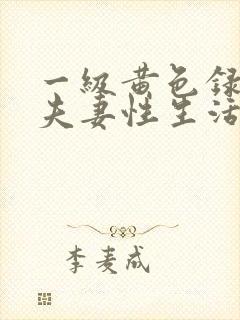 一级黄色録
夫妻性生活
李麦成